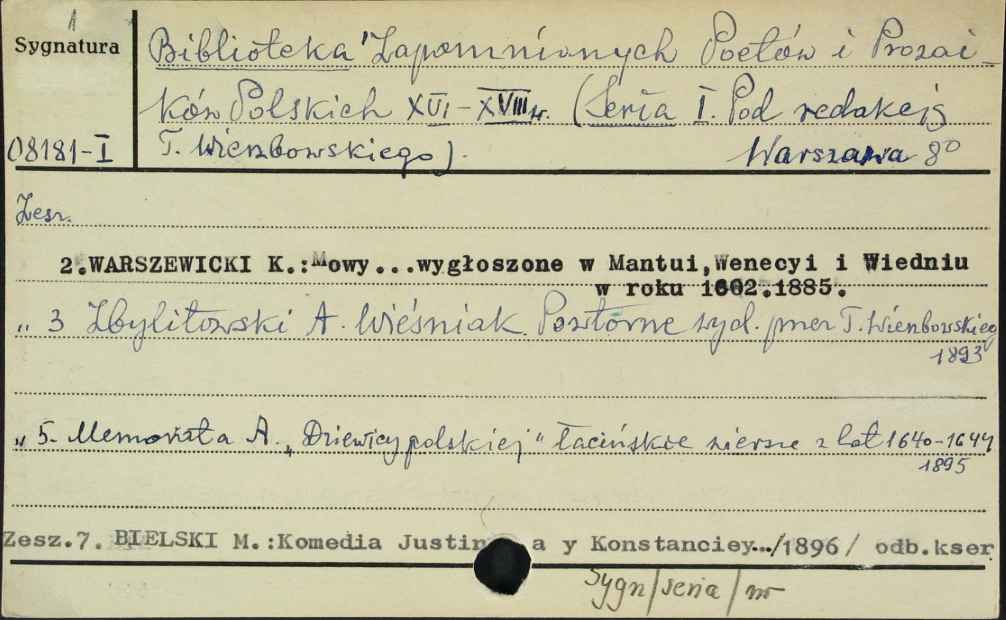 A
Sygnatura
Biblioteka Zapomnianych Poetów i Prozai-
ków Polskich XVI-XVIII w. (Seria I. Pod redakcją
08181-I
T. Wierzbowskiego). Warszawa 8°
Zesz.
2.WARSZEWICKI K.:Mowy...wygłoszone w Mantui,Wenecyi i Wiedniu
w roku 1602.1885.
" 3 Zbylitowski A. Wieśniak. Powtórne wyd. przez T. Wierzbowskiego
1893
" 5. Memorata A. "Dziewicy polskiej" łacińskie wiersze z lat 1640-1644
1895
Zesz.7. BIELSKI M.:Komedia Justin a y Konstanciey.../1896/ odb.kser
Sygn/seria/nr